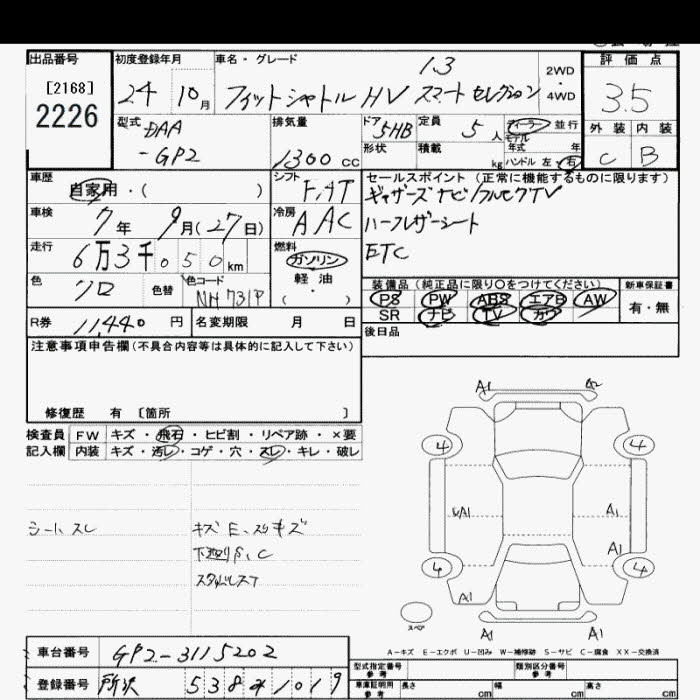 出品番号
[2168]
2226
初度登録年月
24 10月
車名・グレード
1.3
フィットシャトル HV スマートセレクション
2WD
・
4WD
評価点
3.5
外装 内装
C B
型式
DAA
-GP2
排気量
1300 cc
ドア 5HB
形状
定員 5 人
積載 kg
ディーラー 並行
モデル
年式 年
ハンドル 左・右
車歴
自家用・( )
シフト
FAT
セールスポイント(正常に機能するものに限ります)
ギャザーズナビ/フルセグTV
ハーフレザーシート
ETC
車検
7年 9月(27日)
冷房
AAC
走行
6万3千050km
燃料
ガソリン
軽油
( ・ )
色
クロ
色替
色コード
NH731P
装備品(純正品に限り○をつけてください)
PS PW ABS エアB AW
SR ナビ TV カワ
新車保証書
有・無
R券 11,440 円
名変期限 月 日
後日品
注意事項申告欄(不具合内容等は具体的に記入して下さい)
修復歴 有 [箇所 ]
検査員
記入欄
FW キズ・飛石・ヒビ割・リペア跡・×要
内装 キズ・汚レ・コゲ・穴・スレ・キレ・破レ
シートスレ
キズ E、スリキズ
下廻りS、C
スタッドレスT
A1 A2
4 4
A1
A1
A1
4 4
A1
A1 A1
スペア
A-キズ E-エクボ U-凹み W-補修跡 S-サビ C-腐食 XX-交換済
車台番号 GP2-3115202
登録番号 所沢
型式指定番号
参考
類別区分番号
参考
車庫証明用
参考
長さ cm 幅 cm 高さ cm